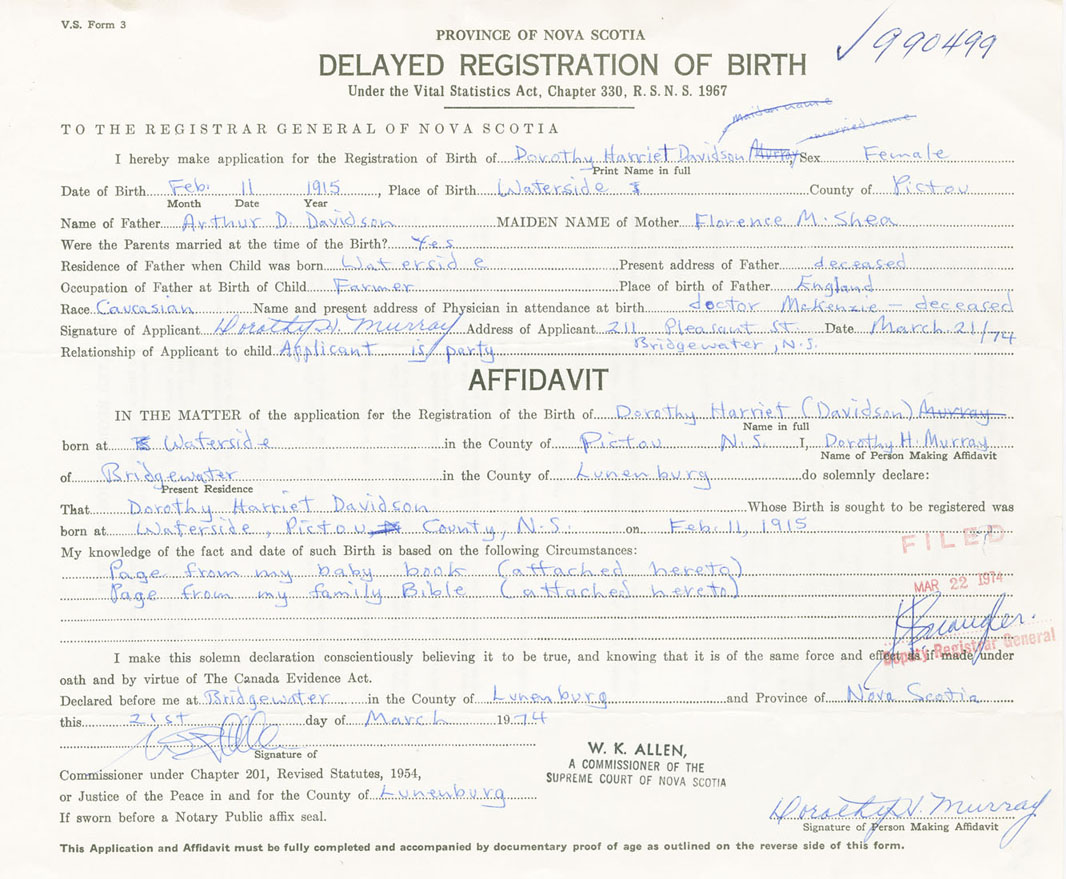 V.S. Form 3
990499
PROVINCE OF NOVA SCOTIA
DELAYED REGISTRATION OF BIRTH
Under the Vital Statistics Act, Chapter 330, R. S. N. S. 1967
maiden name
married name
TO THE REGISTRAR GENERAL OF NOVA SCOTIA
I hereby make application for the Registration of Birth of Dorothy Harriet Davidson Murray Sex Female
Print Name in full
Date of Birth Feb. 11 1915, Place of Birth Waterside County of Pictou
Month Date Year
Name of Father Arthur D. Davidson MAIDEN NAME of Mother Florence M. Shea
Were the Parents married at the time of the Birth? Yes
Residence of Father when Child was born Waterside Present address of Father deceased
Occupation of Father at Birth of Child Farmer Place of birth of Father England
Race Caucasian Name and present address of Physician in attendance at birth doctor McKenzie – deceased
Signature of Applicant Dorothy H. Murray Address of Applicant 211 Pleasant St. Date March 21/74
Relationship of Applicant to child Applicant is party Bridgewater, N.S.
AFFIDAVIT
IN THE MATTER of the application for the Registration of the Birth of Dorothy Harriet (Davidson) Murray
Name in full
born at Waterside in the County of Pictou N.S. I, Dorothy H. Murray
Name of Person Making Affidavit
of Bridgewater in the County of Lunenburg do solemnly declare:
Present Residence
That Dorothy Harriet Davidson Whose Birth is sought to be registered was
born at Waterside, Pictou County, N.S. on Feb. 11, 1915
My knowledge of the fact and date of such Birth is based on the following Circumstances:
FILED
Page from my baby book (attached hereto)
Page from my family Bible (attached hereto)
MAR 22 1974
Deputy Registrar General
I make this solemn declaration conscientiously believing it to be true, and knowing that it is of the same force and effect as if made under
oath and by virtue of The Canada Evidence Act.
Declared before me at Bridgewater in the County of Lunenburg and Province of Nova Scotia
this 21st day of March 1974
Signature of
Commissioner under Chapter 201, Revised Statutes, 1954,
or Justice of the Peace in and for the County of Lunenburg
If sworn before a Notary Public affix seal.
W. K. ALLEN,
A COMMISSIONER OF THE
SUPREME COURT OF NOVA SCOTIA
Dorothy H. Murray
Signature of Person Making Affidavit
This Application and Affidavit must be fully completed and accompanied by documentary proof of age as outlined on the reverse side of this form.